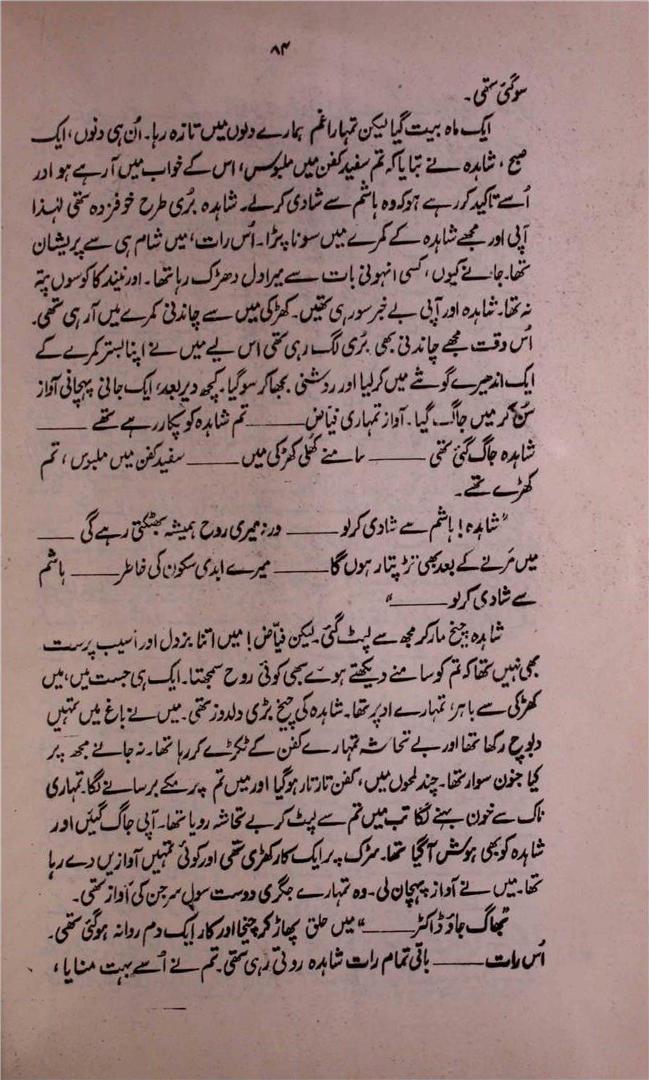 ۸۴
سو گئی تھی۔
ایک ماہ بیت گیا لیکن تمہارا غم ہمارے دلوں میں تازہ رہا۔ اُن ہی دنوں، ایک
صبح، شاہدہ نے بتایا کہ تم سفید کفن میں ملبوس، اس کے خواب میں آ رہے ہو اور
اُسے تاکید کر رہے ہو کہ وہ ہاشم سے شادی کرلے۔ شاہدہ بُری طرح خوفزدہ تھی لہٰذا
آپی اور مجھے شاہدہ کے کمرے میں سونا پڑا۔ اُس رات، میں شام ہی سے پریشان
تھا۔ جانے کیوں، کسی انہونی بات سے میرا دل دھڑک رہا تھا۔ اور نیند کا کوسوں پتہ
نہ تھا۔ شاہدہ اور آپی بے خبر سو رہی تھیں۔ کھڑکی میں سے چاندنی کمرے میں آ رہی تھی۔
اُس وقت مجھے چاندنی بھی بُری لگ رہی تھی اس لیے میں نے اپنا بستر کمرے کے
ایک اندھیرے گوشے میں کر لیا اور روشنی بجھا کر سو گیا۔ کچھ دیر بعد، ایک جانی پہچانی آواز
سُن کر میں جاگ گیا۔ آواز تمہاری فیاض ـــــــ تم شاہدہ کو پکار رہے تھے ـــــــ
شاہدہ جاگ گئی تھی ـــــــ سامنے کھُلی کھڑکی میں ـــــــ سفید کفن میں ملبوس، تم
کھڑے تھے۔
"شاہدہ! ہاشم سے شادی کر لو ـــــــ ورنہ میری روح ہمیشہ بھٹکتی رہے گی ـــــــ
میں مَرنے کے بعد بھی تڑپتا رہوں گا ـــــــ میرے ابدی سکون کی خاطر ـــــــ ہاشم
سے شادی کر لو ـــــــ"
شاہدہ چیخ مار کر مجھ سے لپٹ گئی۔ لیکن فیاض! میں اتنا بزدل اور آسیب پرست
بھی نہیں تھا کہ تم کو سامنے دیکھتے ہوئے بھی کوئی روح سمجھتا۔ ایک ہی جست میں، میں
کھڑکی سے باہر، تمہارے اوپر تھا۔ شاہدہ کی چیخ بڑی دلدوز تھی۔ میں نے باغ میں تمہیں
دبوچ رکھا تھا اور بے تحاشہ تمہارے کفن کے ٹکڑے کر رہا تھا۔ نہ جانے مجھ پر
کیا جنون سوار تھا۔ چند لمحوں میں، کفن تار تار ہو گیا اور میں تم پر مکے برسانے لگا۔ تمہاری
ناک سے خون بہنے لگا تب میں تم سے لپٹ کر بے تحاشہ رویا تھا۔ آپی جاگ گئیں اور
شاہدہ کو بھی ہوش آ گیا تھا۔ سڑک پر ایک کار کھڑی تھی اور کوئی تمہیں آوازیں دے رہا
تھا۔ میں نے آواز پہچان لی۔ وہ تمہارے جگری دوست سول سرجن کی آواز تھی۔
"بھاگ جاؤ ڈاکٹر ـــــــ" میں حلق پھاڑ کر چیخا اور کار ایک دم روانہ ہو گئی تھی۔
اُس رات ـــــــ باقی تمام رات شاہدہ روتی رہی تھی۔ تم نے اُسے بہت منایا،